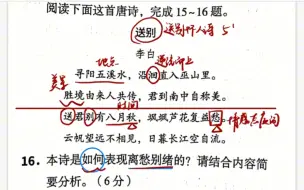 阅读下面这首唐诗,完成15~16题。
送别 送别怀人诗 5'
李白
地点 逆流而上
寻阳五溪水,沿洄直入巫山里。
美景
胜境由来人共传,君到南中自称美。
时间
送君别有八月秋,飒飒芦花复益愁。
云帆望远不相见,日暮长江空自流。
16. 本诗是如何表现离愁别绪的?请结合内容简
要分析。(6分)